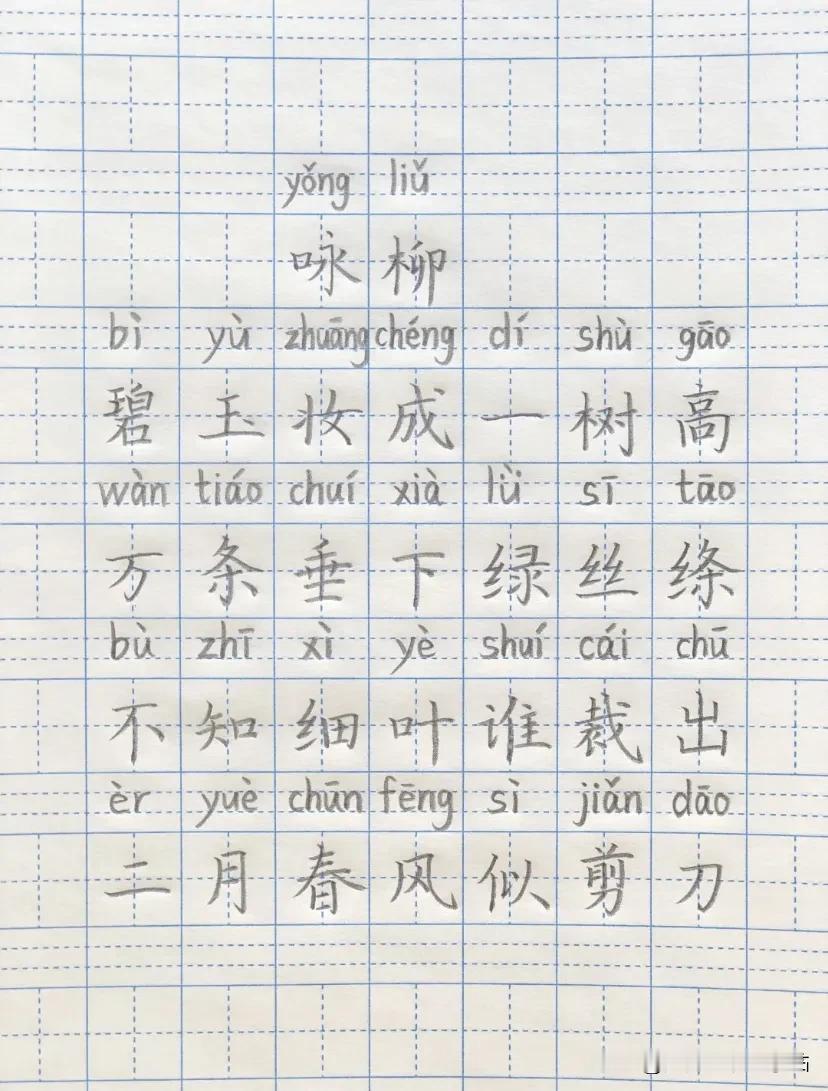 yǒng liǔ
咏柳
bì yù zhuāng chéng dí shù gāo
碧玉妆成一树高
wàn tiáo chuí xià lǜ sī tāo
万条垂下绿丝绦
bù zhī xì yè shuí cái chū
不知细叶谁裁出
èr yuè chūn fēng sì jiǎn dāo
二月春风似剪刀